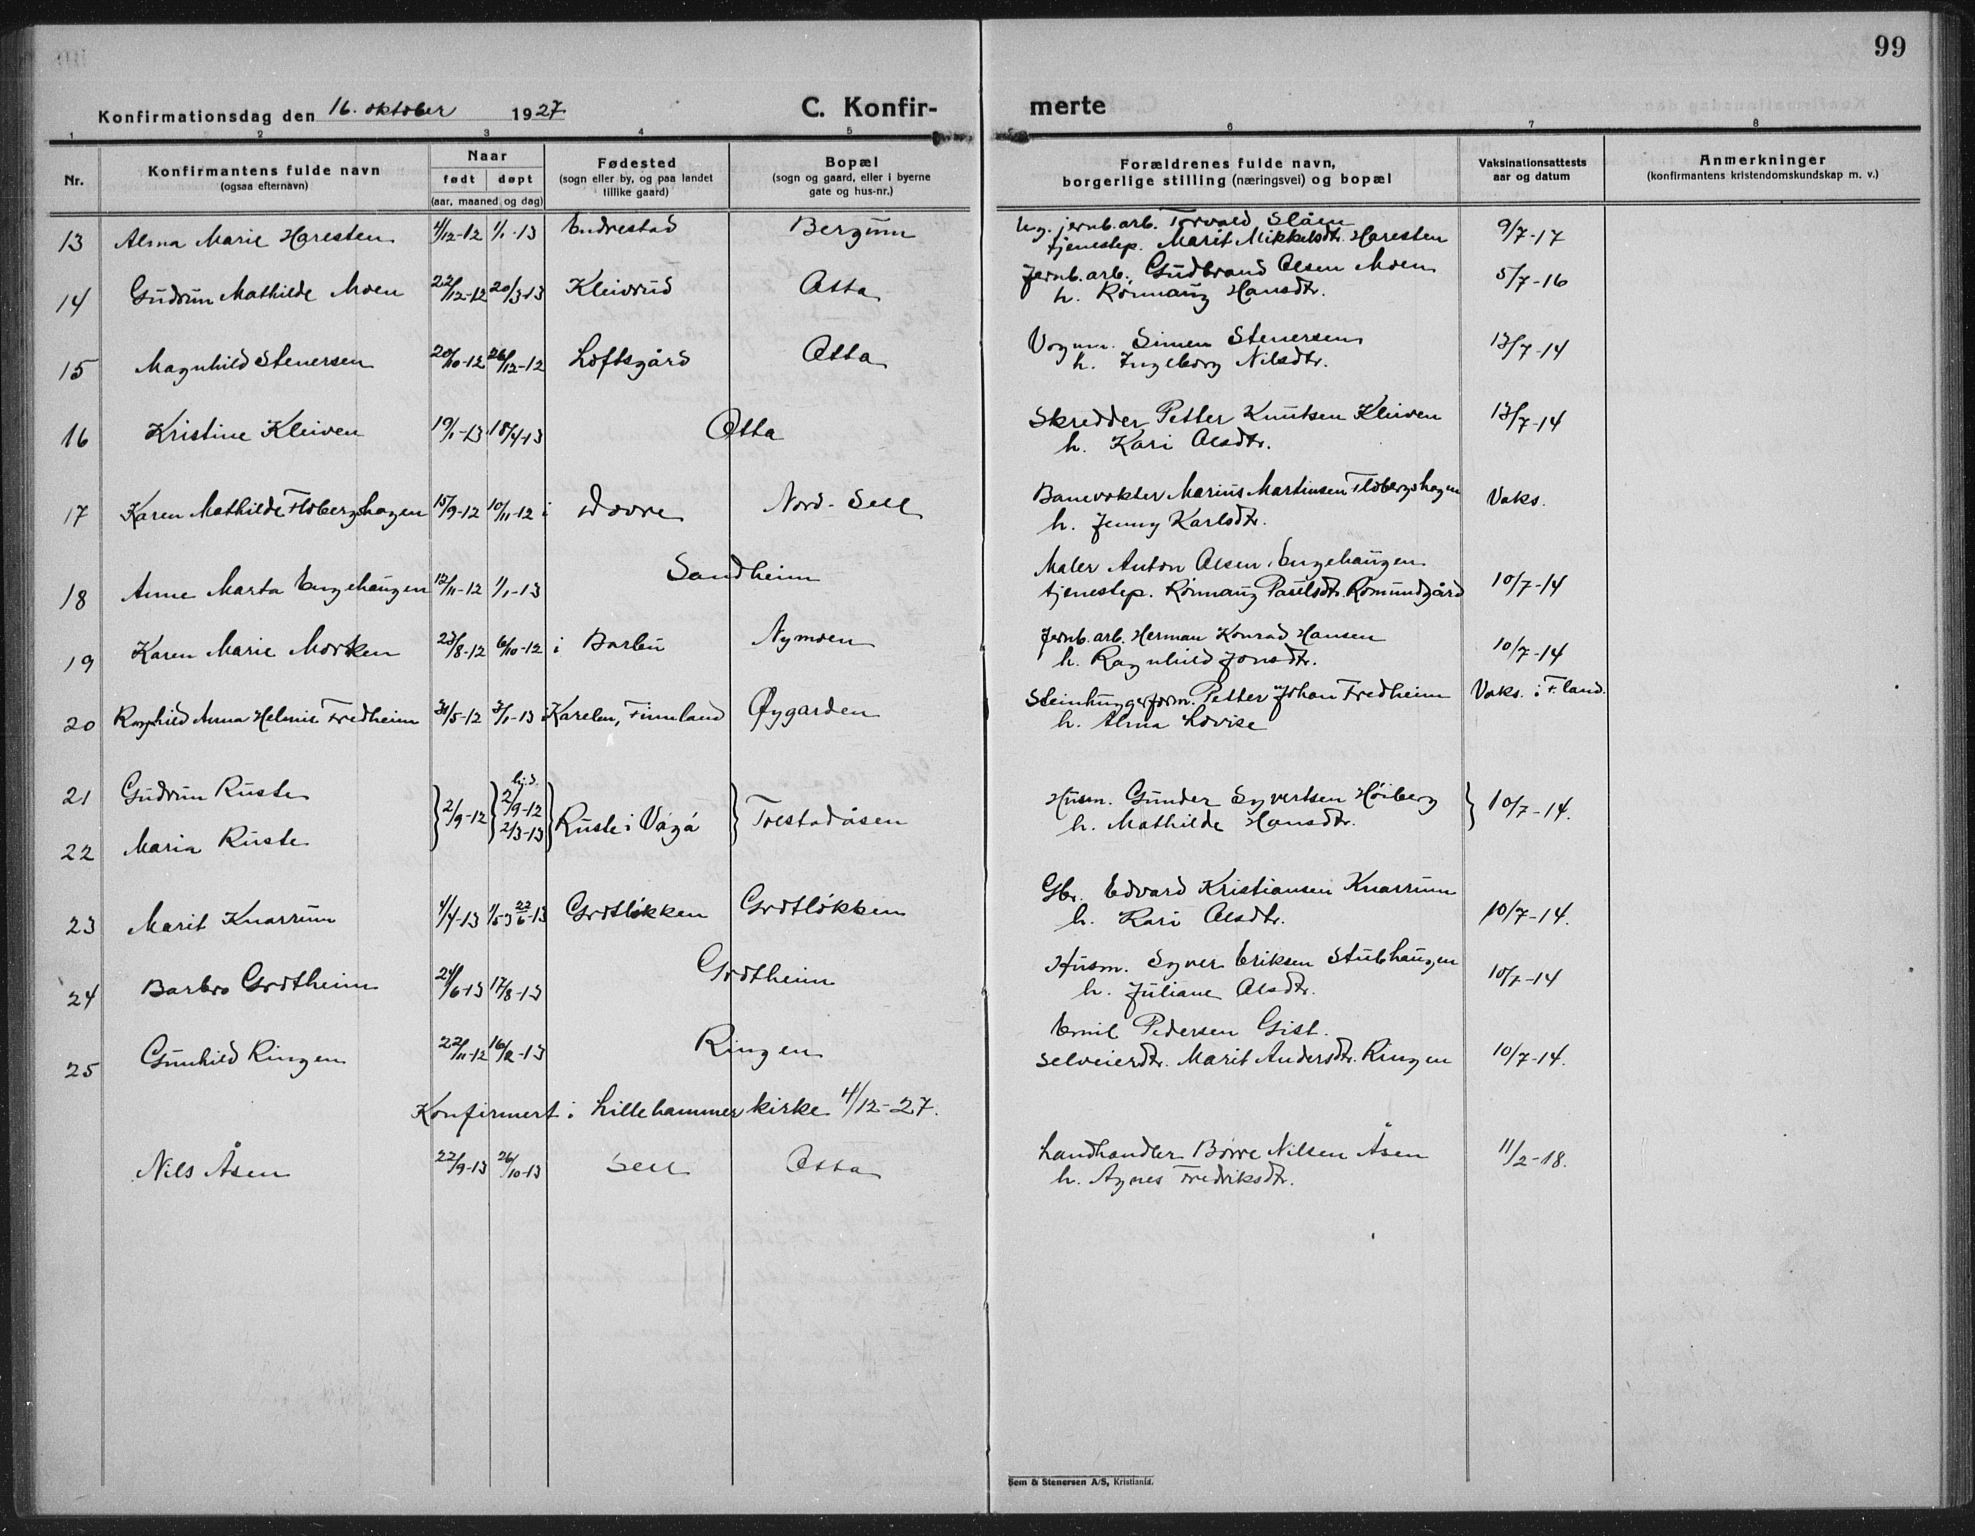 99
Konfirmationsdag den 16. oktober 1927
C. Konfir-
merte
1 2 3 4 5 6 7 8
Nr.
Konfirmantens fulde navn
(ogsaa efternavn)
Naar
født døpt
(aar, maaned og dag)
Fødested
(sogn eller by, og paa landet
tillike gaard)
Bopæl
(sogn og gaard, eller i byerne
gate og hus-nr.)
Forældrenes fulde navn,
borgerlige stilling (næringsvei) og bopæl
Vaksinationsattests
aar og datum
Anmerkninger
(konfirmantens kristendomskundskap m. v.)
13 Alma Marie Haresten 4/12-12 1/1-13 Endrestad Bergum
Ug. jernb.arb. Torvald Slåen
tjenestep. Marit Mikkelsdtr. Haresten 9/7-17
14 Gudrun Mathilde Moen 22/12-12 20/3-13 Kleivrud Otta
Jernb.arb. Gudbrand Olsen Moen
h. Rønnaug Hansdtr. 5/7-16
15 Magnhild Stenersen 20/10-12 26/12-12 Loftsgård Otta
Vognm. Simen Stenersen
h. Ingeborg Nilsdtr. 13/7-14
16 Kristine Kleiven 19/1-13 18/4-13 Otta
Skredder Petter Knutsen Kleiven
h. Kari Olsdtr. 13/7-14
17 Karen Mathilde Flobergshagen 15/9-12 10/11-12 i Dovre Nord-Sell
Banevokter Marius Martinsen Flobergshagen
h. Jenny Karlsdtr. Vaks.
18 Anne Marta Engehaugen 12/11-12 1/1-13 Sandheim
Maler Anton Olsen Engehaugen
tjenestep. Rønnaug Paulsdtr. Romundgård 10/7-14
19 Karen Marie Morken 23/8-12 6/10-12 i Barbu Nymoen
Jernb.arb. Herman Konrad Hansen
h. Ragnhild Jonsdtr. 10/7-14
20 Ragnhild Anna Helmie Fredheim 31/5-12 3/1-13 Karelen, Finnland Øygarden
Steinhuggerform. Petter Johan Fredheim
h. Alma Lovise Vaks. i F.land.
21 Gudrun Ruste
22 Maria Ruste
2/9-12 hjd. 2/9-12 2/3-13 Ruste i Vågå Tolstadåsen
Husm. Gunder Syvertsen Høiberg
h. Mathilde Hansdtr. 10/7-14.
23 Marit Knarrum 4/4-13 1/5 22/6-13 Grotløkken Grotløkken
Gbr. Edvard Kristiansen Knarrum
h. Kari Olsdtr. 10/7-14.
24 Barbro Grottheim 24/6-13 17/8-13 Grottheim
Husm. Syver Eriksen Stubhaugen
h. Juliane Olsdtr. 10/7-14
25 Gunhild Ringen 22/11-12 16/2-13 Ringen
Emil Pedersen Gist.
selveierdtr. Marit Andersdtr. Ringen 10/7-14.
Konfirmert i Lillehammer kirke 4/12-27.
Nils Åsen 22/9-13 26/10-13 Sell Otta
Landhandler Børre Nilsen Åsen
h. Agnes Fredriksdtr. 11/2-18.
Sem & Stenersen A/S, Kristiania.